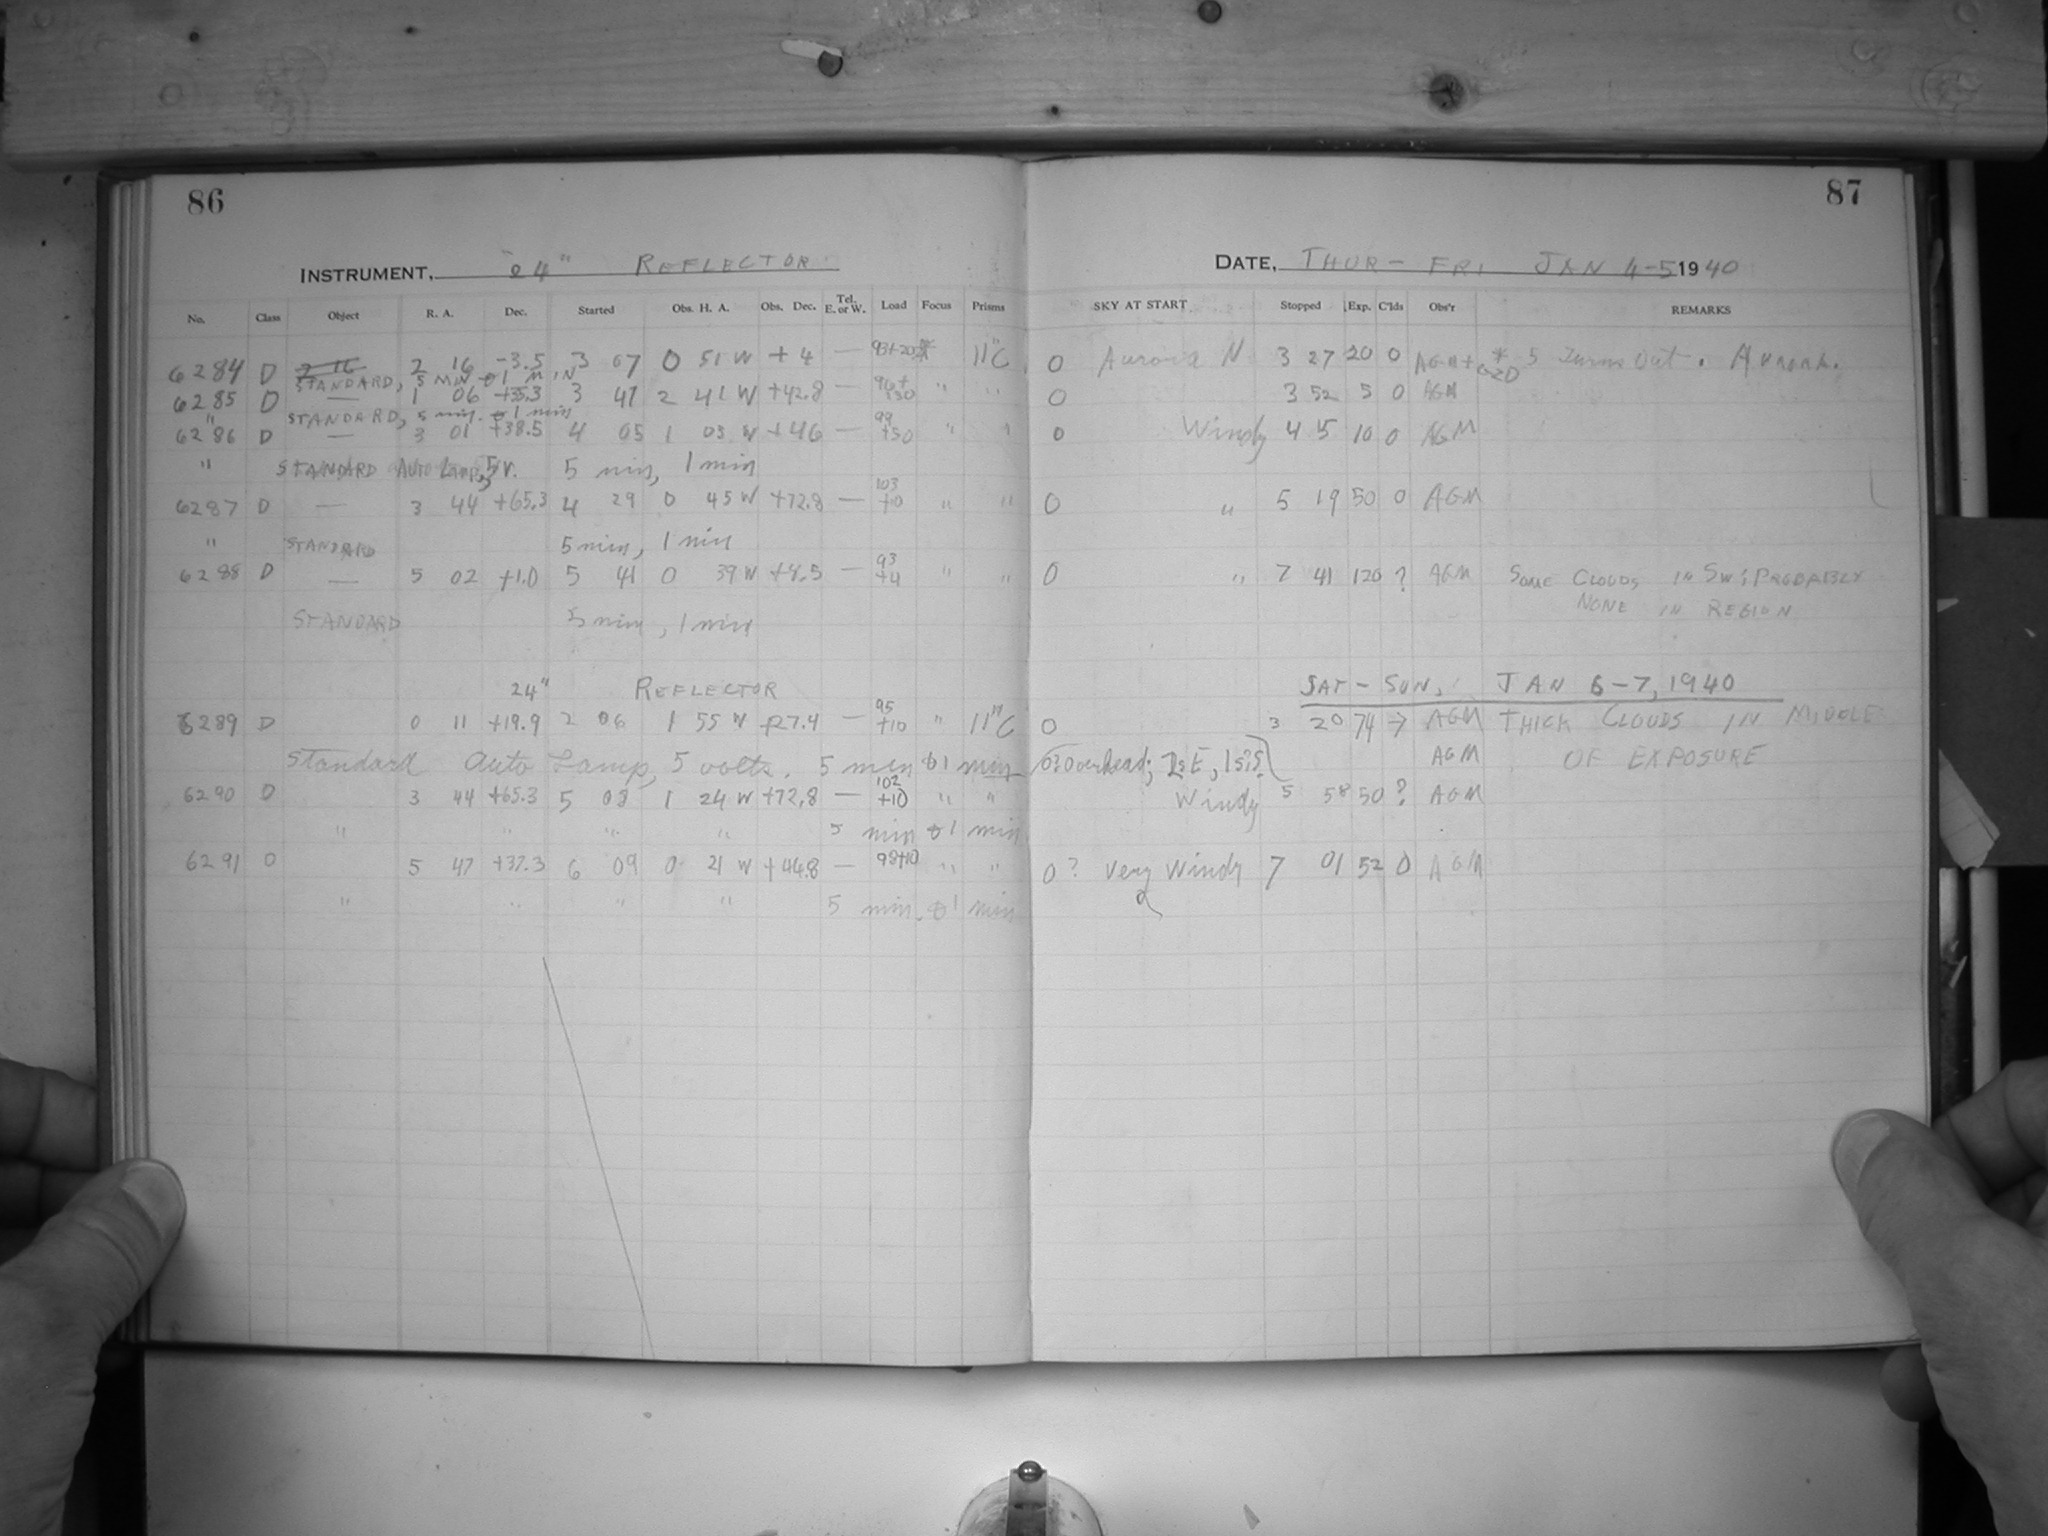 86
87
INSTRUMENT, 24" REFLECTOR
DATE, THUR – FRI JAN 4-5 1940
No. Class Object R. A. Dec. Started Obs. H. A. Obs. Dec. Tel. E. or W. Load Focus Prisms SKY AT START Stopped Exp. C'lds Obs'r REMARKS
6284 D 2 16 2 16 -3.5 3 07 0 51 W +4 — 93+20 * 11"C 0 Aurora N 3 27 20 0 AGM+ * 5 Turns Out. Aurora.
STANDARD, 5 MIN 1 MIN
6285 D — 1 06 +35.3 3 47 2 41 W +42.8 — " " 0 3 52 5 0 AGM
" STANDARD, 5 min. 1 min
6286 D — 3 01 +38.5 4 05 1 03 W +46 — 99 +50 " " 0 Windy 4 15 10 0 AGM
" STANDARD AUTO LAMP, 5 V. 5 min, 1 min
6287 D — 3 44 +65.3 4 29 0 45 W +72.8 — 103 +10 " " 0 " 5 19 50 0 AGM
" STANDARD 5 min, 1 min
6288 D — 5 02 +1.0 5 41 0 39 W +8.5 — 93 +4 " " 0 " 7 41 120 ? AGM SOME CLOUDS IN SW; PROBABLY
NONE IN REGION
STANDARD 5 min, 1 min
24" REFLECTOR SAT – SUN, JAN 6-7, 1940
6289 D 0 11 +19.9 2 06 1 55 W +27.4 — 95 +10 " 11"C 0 3 20 74 → AGM THICK CLOUDS IN MIDDLE
Standard Auto Lamp, 5 volts. 5 min 1 min overhead; AGM OF EXPOSURE
6290 D 3 44 +65.3 5 08 1 24 W +72.8 — 102 +10 " " Windy 5 58 50 ? AGM
" " " " 5 min 1 min
6291 D 5 47 +37.3 6 09 0 21 W +44.8 — 98+10 " " 0? Very Windy 7 01 52 0 AGM
" " " " 5 min. 1 min